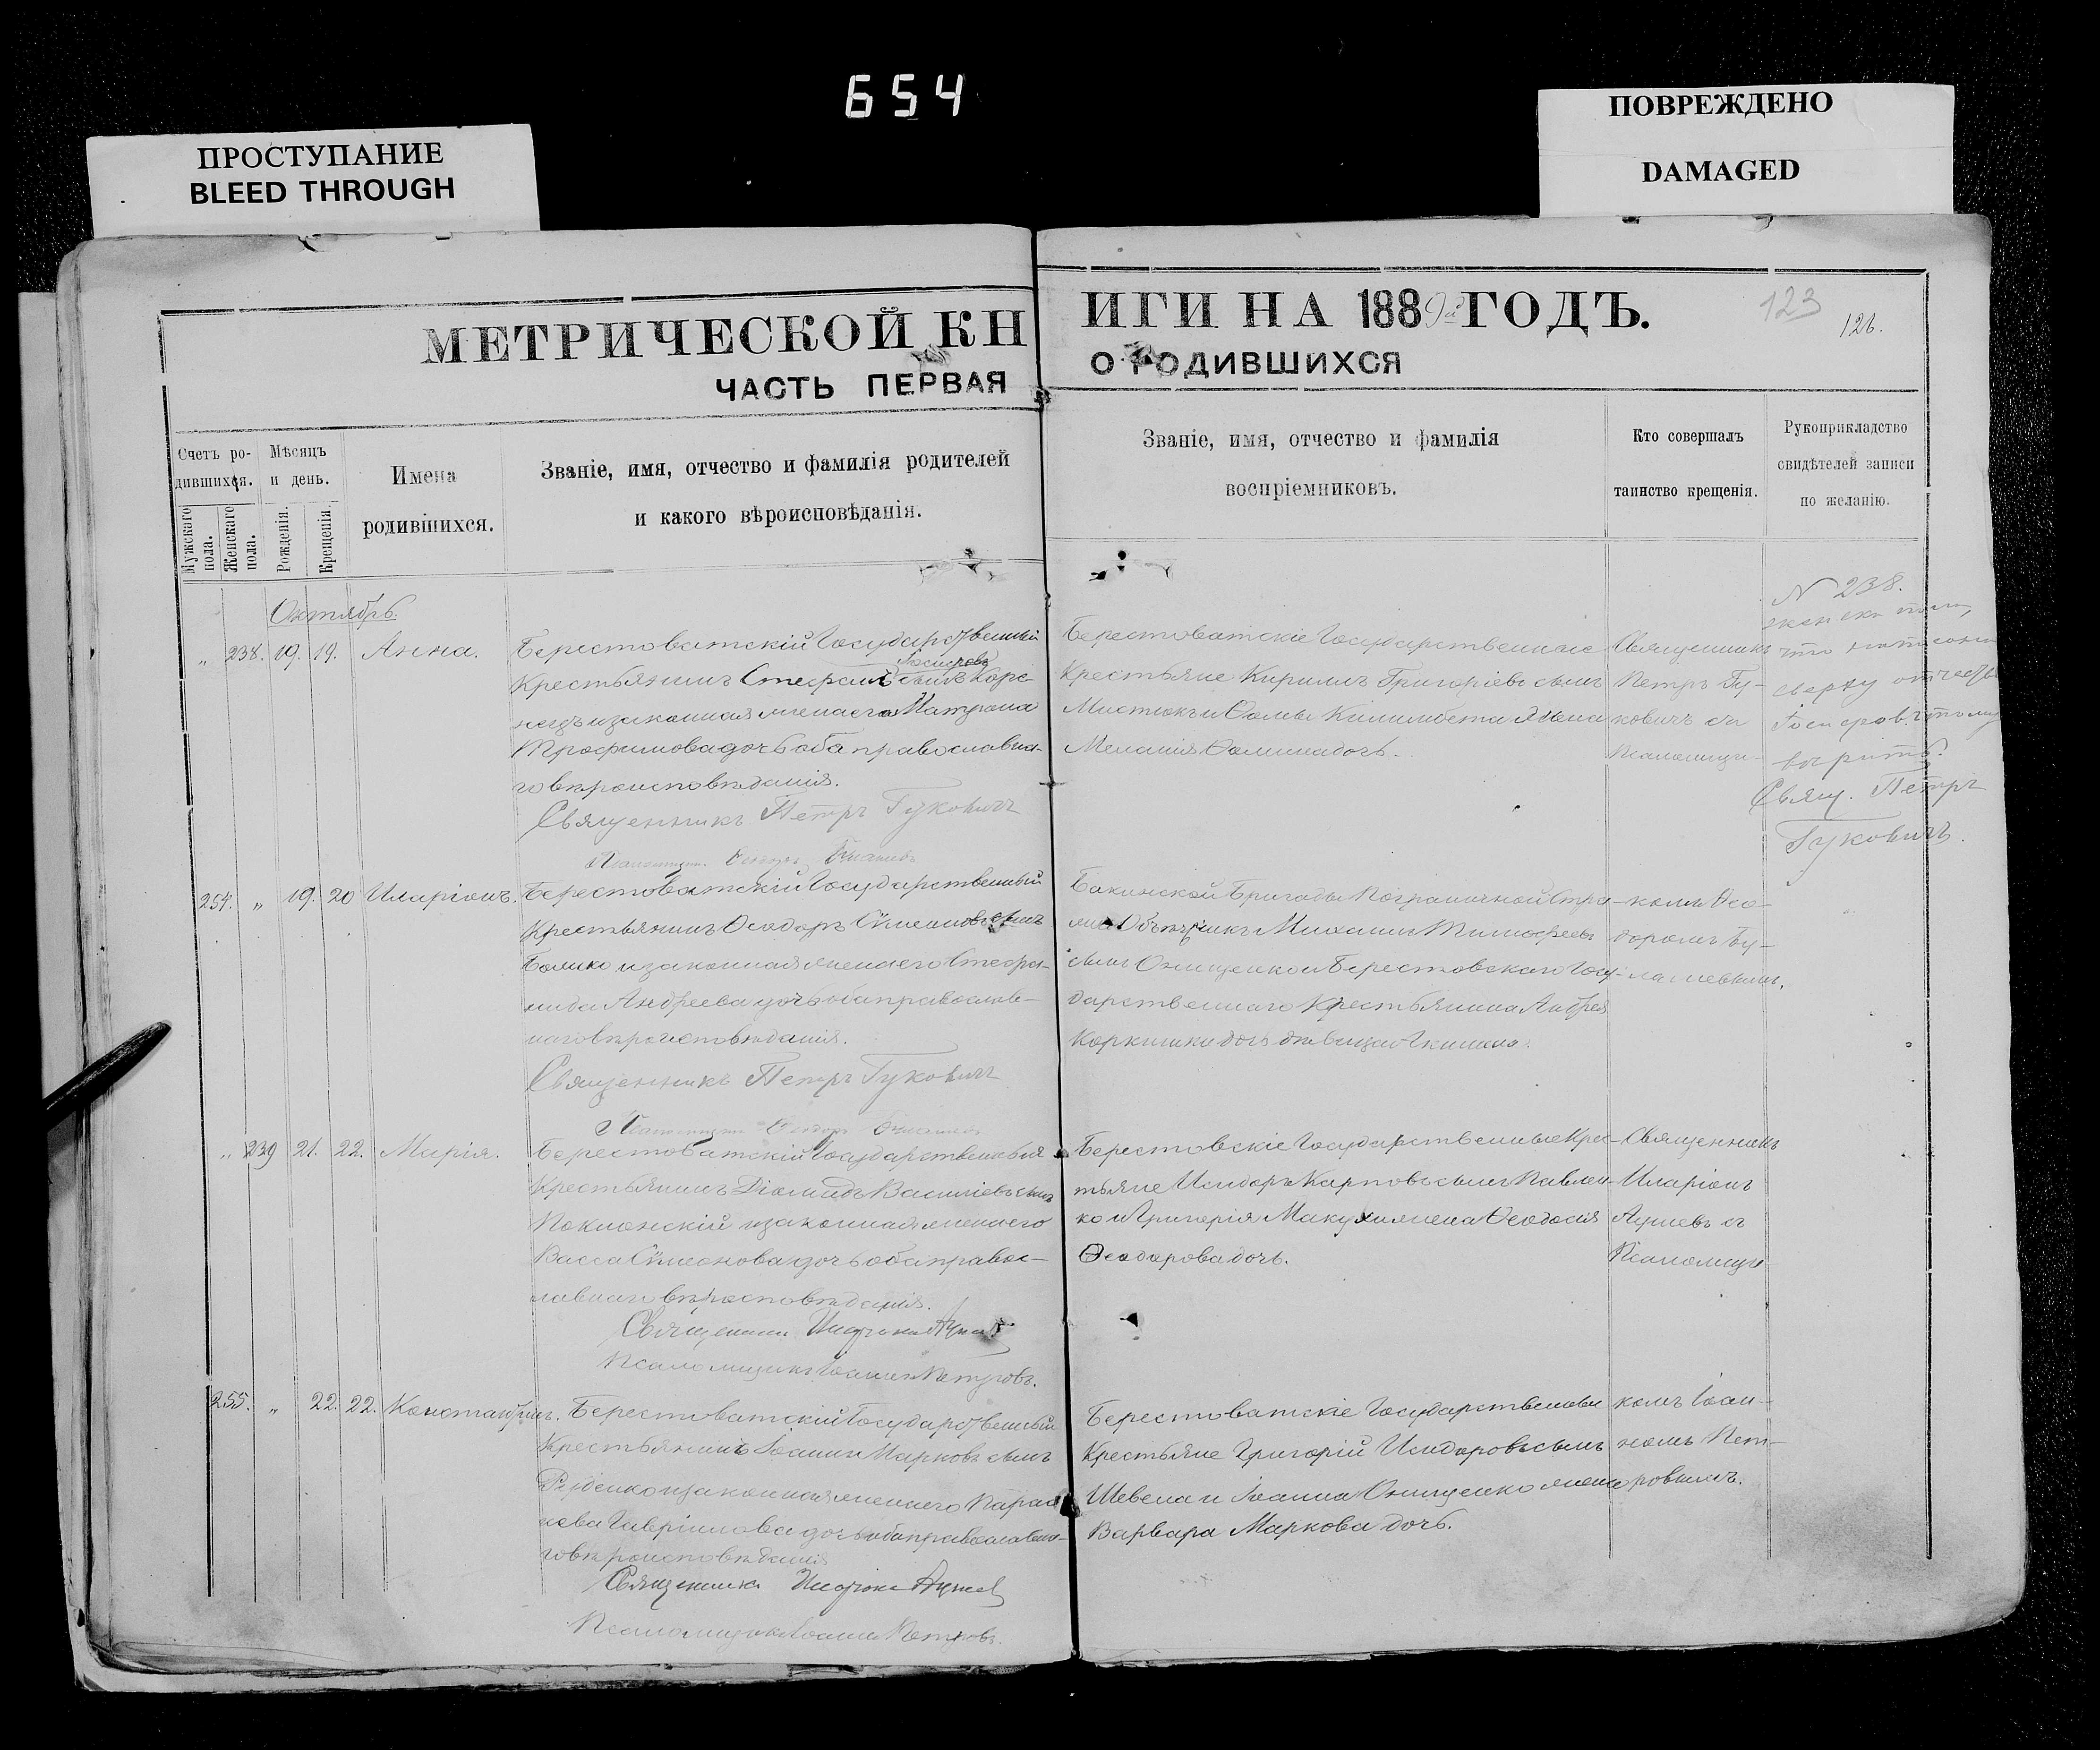 654
ПРОСТУПАНИЕ
BLEED THROUGH
ПОВРЕЖДЕНО
DAMAGED
МЕТРИЧЕСКОЙ КНИГИ НА 1889й ГОДЪ.
123
ЧАСТЬ ПЕРВАЯ О РОДИВШИХСЯ
Счетъ ро-
дившихся.
Мужскаго пола.
Женскаго пола.
Мѣсяцъ
и день.
Рожденія.
Крещенія.
Имена
родившихся.
Званіе, имя, отчество и фамилія родителей
и какого вѣроисповѣданія.
Званіе, имя, отчество и фамилія
воспріемниковъ.
Кто совершалъ
таинство крещенія.
Рукоприкладство
свидѣтелей записи
по желанію.
Октябрь.
„ 238. 19. 19. Анна.
Берестоватскій Государственный
Крестьянинъ Стефанъ сынъ
и законная жена его Матрона
Трофимова дочь оба православна-
го вѣроисповѣданія.
Священникъ Петръ Гуковичъ
Берестоватскіе Государственные
Крестьяне Кирилъ Григоріевъ сынъ
Мистюкъ и Фомы жена
Меланія дочь.
Священникъ
Петръ Гу-
ковичъ съ
Псаломщи-
N 238.
что
сверху отчество
вѣрить.
Свящ. Петръ
Гуковичъ.
254. „ 19. 20 Иларіонъ.
Берестоватскій Государственный
Крестьянинъ Ѳеодоръ Сѵмеоновъ сынъ
и законная жена его Стефа-
нида Андреева дочь оба православ-
наго вѣроисповѣданія.
Священникъ Петръ Гуковичъ
Бакинской Бригады Пограничной Стра-
жи Объѣщикъ Михаилъ Тимофеевъ
сынъ Онищенко и Берестовскаго Госу-
дарственнаго Крестьянина Андрея
дочь дѣвица
-комъ Ѳео-
доромъ
„ 239 21. 22. Марія.
Берестоватскій Государственный
Крестьянинъ Діомидъ Василіевъ сынъ
Поклонскій и законная жена его
Васса Сѵмеонова дочь оба правос-
лавнаго вѣроисповѣданія.
Священникъ
Псаломщикъ Іоаннъ Петровъ.
Берестовскіе Государственные Крес-
тьяне Исидоръ Карповъ сынъ Павлен-
ко и Григорія Макухи жена Ѳеодосія
Ѳеодорова дочь.
Священникъ
Иларіонъ
съ
Псаломщи
255. „ 22. 22. Константинъ.
Берестоватскій Государственный
Крестьянинъ Іоаннъ Марковъ сынъ
Руденко и законная жена его Параs-
кева Гавріилова дочь оба православна-
го вѣроисповѣданія
Священникъ
Псаломщикъ Іоаннъ Петровъ.
Берестоватскіе Государственные
Крестьяне Григорій Исидоровъ сынъ
Шевена и Іоанна Онищенко жена
Варвара Маркова дочь.
комъ Іоан-
номъ Пет-
ровымъ.